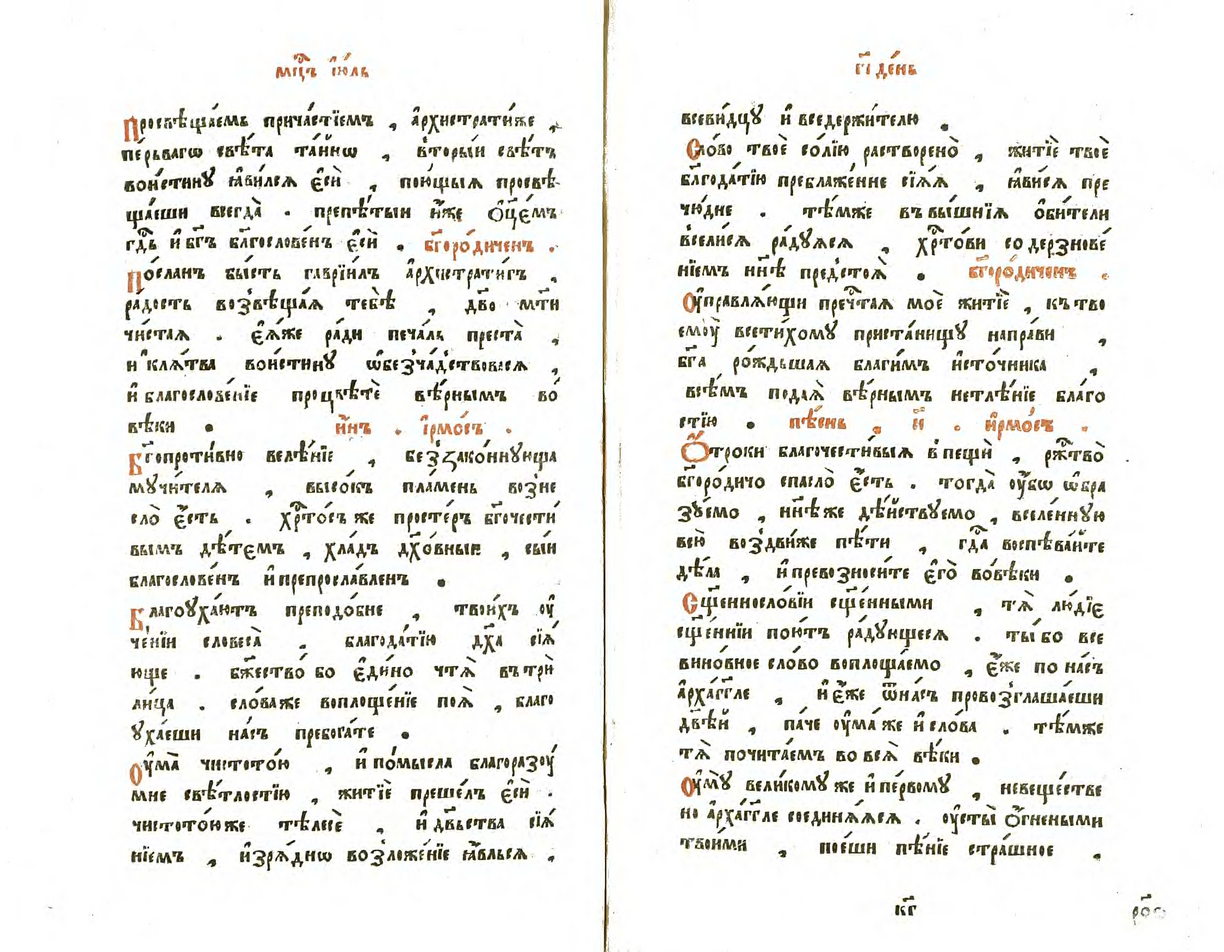 мцⷭ҇ъ і҆ю́ль
Просвѣща́емь прича́стїемъ , а҆рхистрати́же ,
пе́рьвагѡ свѣ́та та́йнѡ , вторы́и свѣ́тъ
вои́стинꙋ ꙗ҆ви́лсѧ є҆сѝ , пою́щыѧ просвѣ
ща́еши всегда̀ . препѣ́тыи и҆́же ѻ҆ц҃е́мъ
гдⷭ҇ь и҆ бг҃ъ блгⷭ҇ове́нъ є҆сѝ . бг҃оро́диченъ .
По́сланъ бы́сть гаврїи́лъ а҆рхистрати́гъ ,
ра́дость возвѣща́ѧ тебѣ̀ , дв҃о мт҃и
чи́стаѧ . є҆ѧ́же ра́ди печа́ль преста̀ ,
и҆ клѧ́тва вои́стинꙋ ѡ҆безча́дствовасѧ ,
и҆ благослове́нїе процвѣ́те вѣ́рнымъ во́
вѣки . и҆́нъ . і҆рмо́съ .
Бг҃опроти́вно велѣ́нїе , беззако́ннꙋюща
мꙋчи́телѧ , высо́къ пла́мень возне
сло̀ є҆́сть . хрⷭ҇то́съ же просте́ръ бг҃очести́
вымъ дѣ́темъ , хла́дъ дх҃о́вныи , сы́и
благослове́нъ и҆ препросла́вленъ .
Благоꙋха́ютъ преподо́бне , твои́хъ оу҆
че́нїи словеса̀ . благода́тїю дх҃а сїѧ́
юще . бж҃ество́ бо є҆ди́но чтѧ̀ въ трѝ
лица̀ . сло́ва же воплоще́нїе поѧ̀ , благо
ꙋха́еши на́съ пребога́те .
Оу҆ма̀ чистото́ю , и҆ по́мысла благоразоу́
мне свѣ́тлостїю , житїѐ преше́лъ є҆сѝ .
чистото́ю же тѣлесѐ , и҆ дв҃ьства сїѧ́
нїемъ , и҆зрѧ́днѡ возложе́нїе ꙗ҆́вльсѧ ,
е҃і де́нь
всеви́дцꙋ и҆ вседержи́телю .
Сло́во твоѐ со́лїю растворено̀ , житїѐ твоѐ
блгода́тїю преблаже́нне сїѧ́ѧ , ꙗ҆ви́сѧ пре
чю́дне . тѣ́мже въ вы́шнїѧ ѻ҆би́тели
всели́сѧ ра́дꙋѧсѧ , хрⷭ҇то́ви со дерзнове́
нїемъ нн҃ѣ предстоѧ̀ . бг҃оро́диченъ .
Оу҆правлѧ́ющи пречⷭ҇таѧ моѐ житїѐ , къ тво
емоу̀ всети́хомꙋ приста́нищꙋ напра́ви ,
бг҃а ро́ждьшаѧ благи́мъ и҆сто́чника ,
всѣ́мъ подаѧ̀ вѣ́рнымъ нетлѣ́нїе бла́го
стїю . пѣ́снь , и҃ . и҆рмо́съ .
Ѻ҆́троки благочести́выѧ в пещѝ , ржⷭ҇тво̀
бг҃оро́дичо спасло̀ є҆́сть . тогда̀ оу҆́бѡ ѡ҆бра
зꙋ́емо , нн҃ѣ же дѣ́йствꙋемо , вселе́ннꙋю
всю̀ воздви́же пѣ́ти , гдⷭ҇а воспѣва́йте
дѣ́ла , и҆ превозноси́те є҆го̀ во вѣ́ки .
Сщ҃еннослові́и сщ҃е́нными , тѧ̀ лю́дїє
сщ҃е́ннїи пою́тъ ра́дꙋющесѧ . ты́ бо все
вино́вное сло́во воплоща́емо , є҆́же по на́съ
а҆рха́гг҃ле , и҆ є҆́же ѿ на́съ провозглаша́еши
двⷭ҇ѣй , па́че оу҆ма́ же и҆ сло́ва . тѣ́мже
тѧ̀ почита́емъ во всѧ̀ вѣ́ки .
Оу҆мꙋ̀ вели́комꙋ же и҆ пе́рвомꙋ , невеще́стве
но а҆рха́гг҃ле соединѧ́ѧсѧ . оу҆сты̀ ѻ҆́гнеными
твои́ми , пое́ши пѣ́нїе стра́шное ,
кг҃